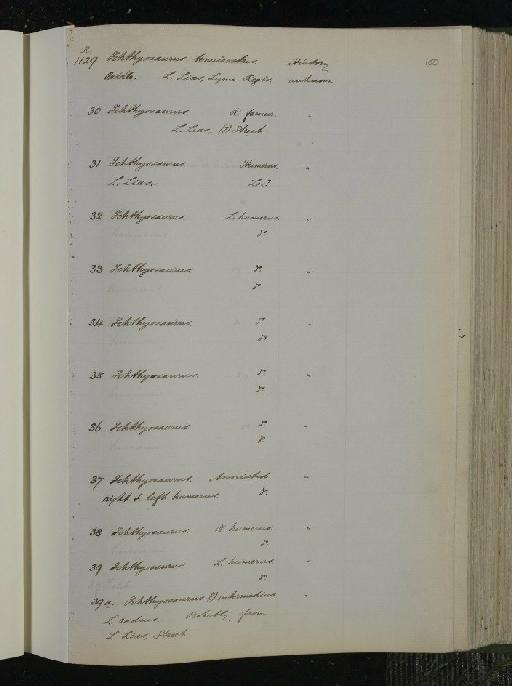 R
1129 Ichthyosaurus tenuirostris History
L. Lias, Lyme Regis. unknown
30 Ichthyosaurus R. femur "
L. Lias, ? Street
31 Ichthyosaurus Humerus "
L. Lias.
32 Ichthyosaurus L. humerus "
do.
33 Ichthyosaurus do. "
do.
34 Ichthyosaurus do. "
do.
35 Ichthyosaurus do. "
do.
36 Ichthyosaurus do. "
do.
37 Ichthyosaurus. Associated "
right & left humerus. do.
38 Ichthyosaurus R. humerus "
do.
39 Ichthyosaurus L. humerus "
do.
39a. Ichthyosaurus ? intermedius "
L. radius. Probably from
L. Lias, Street